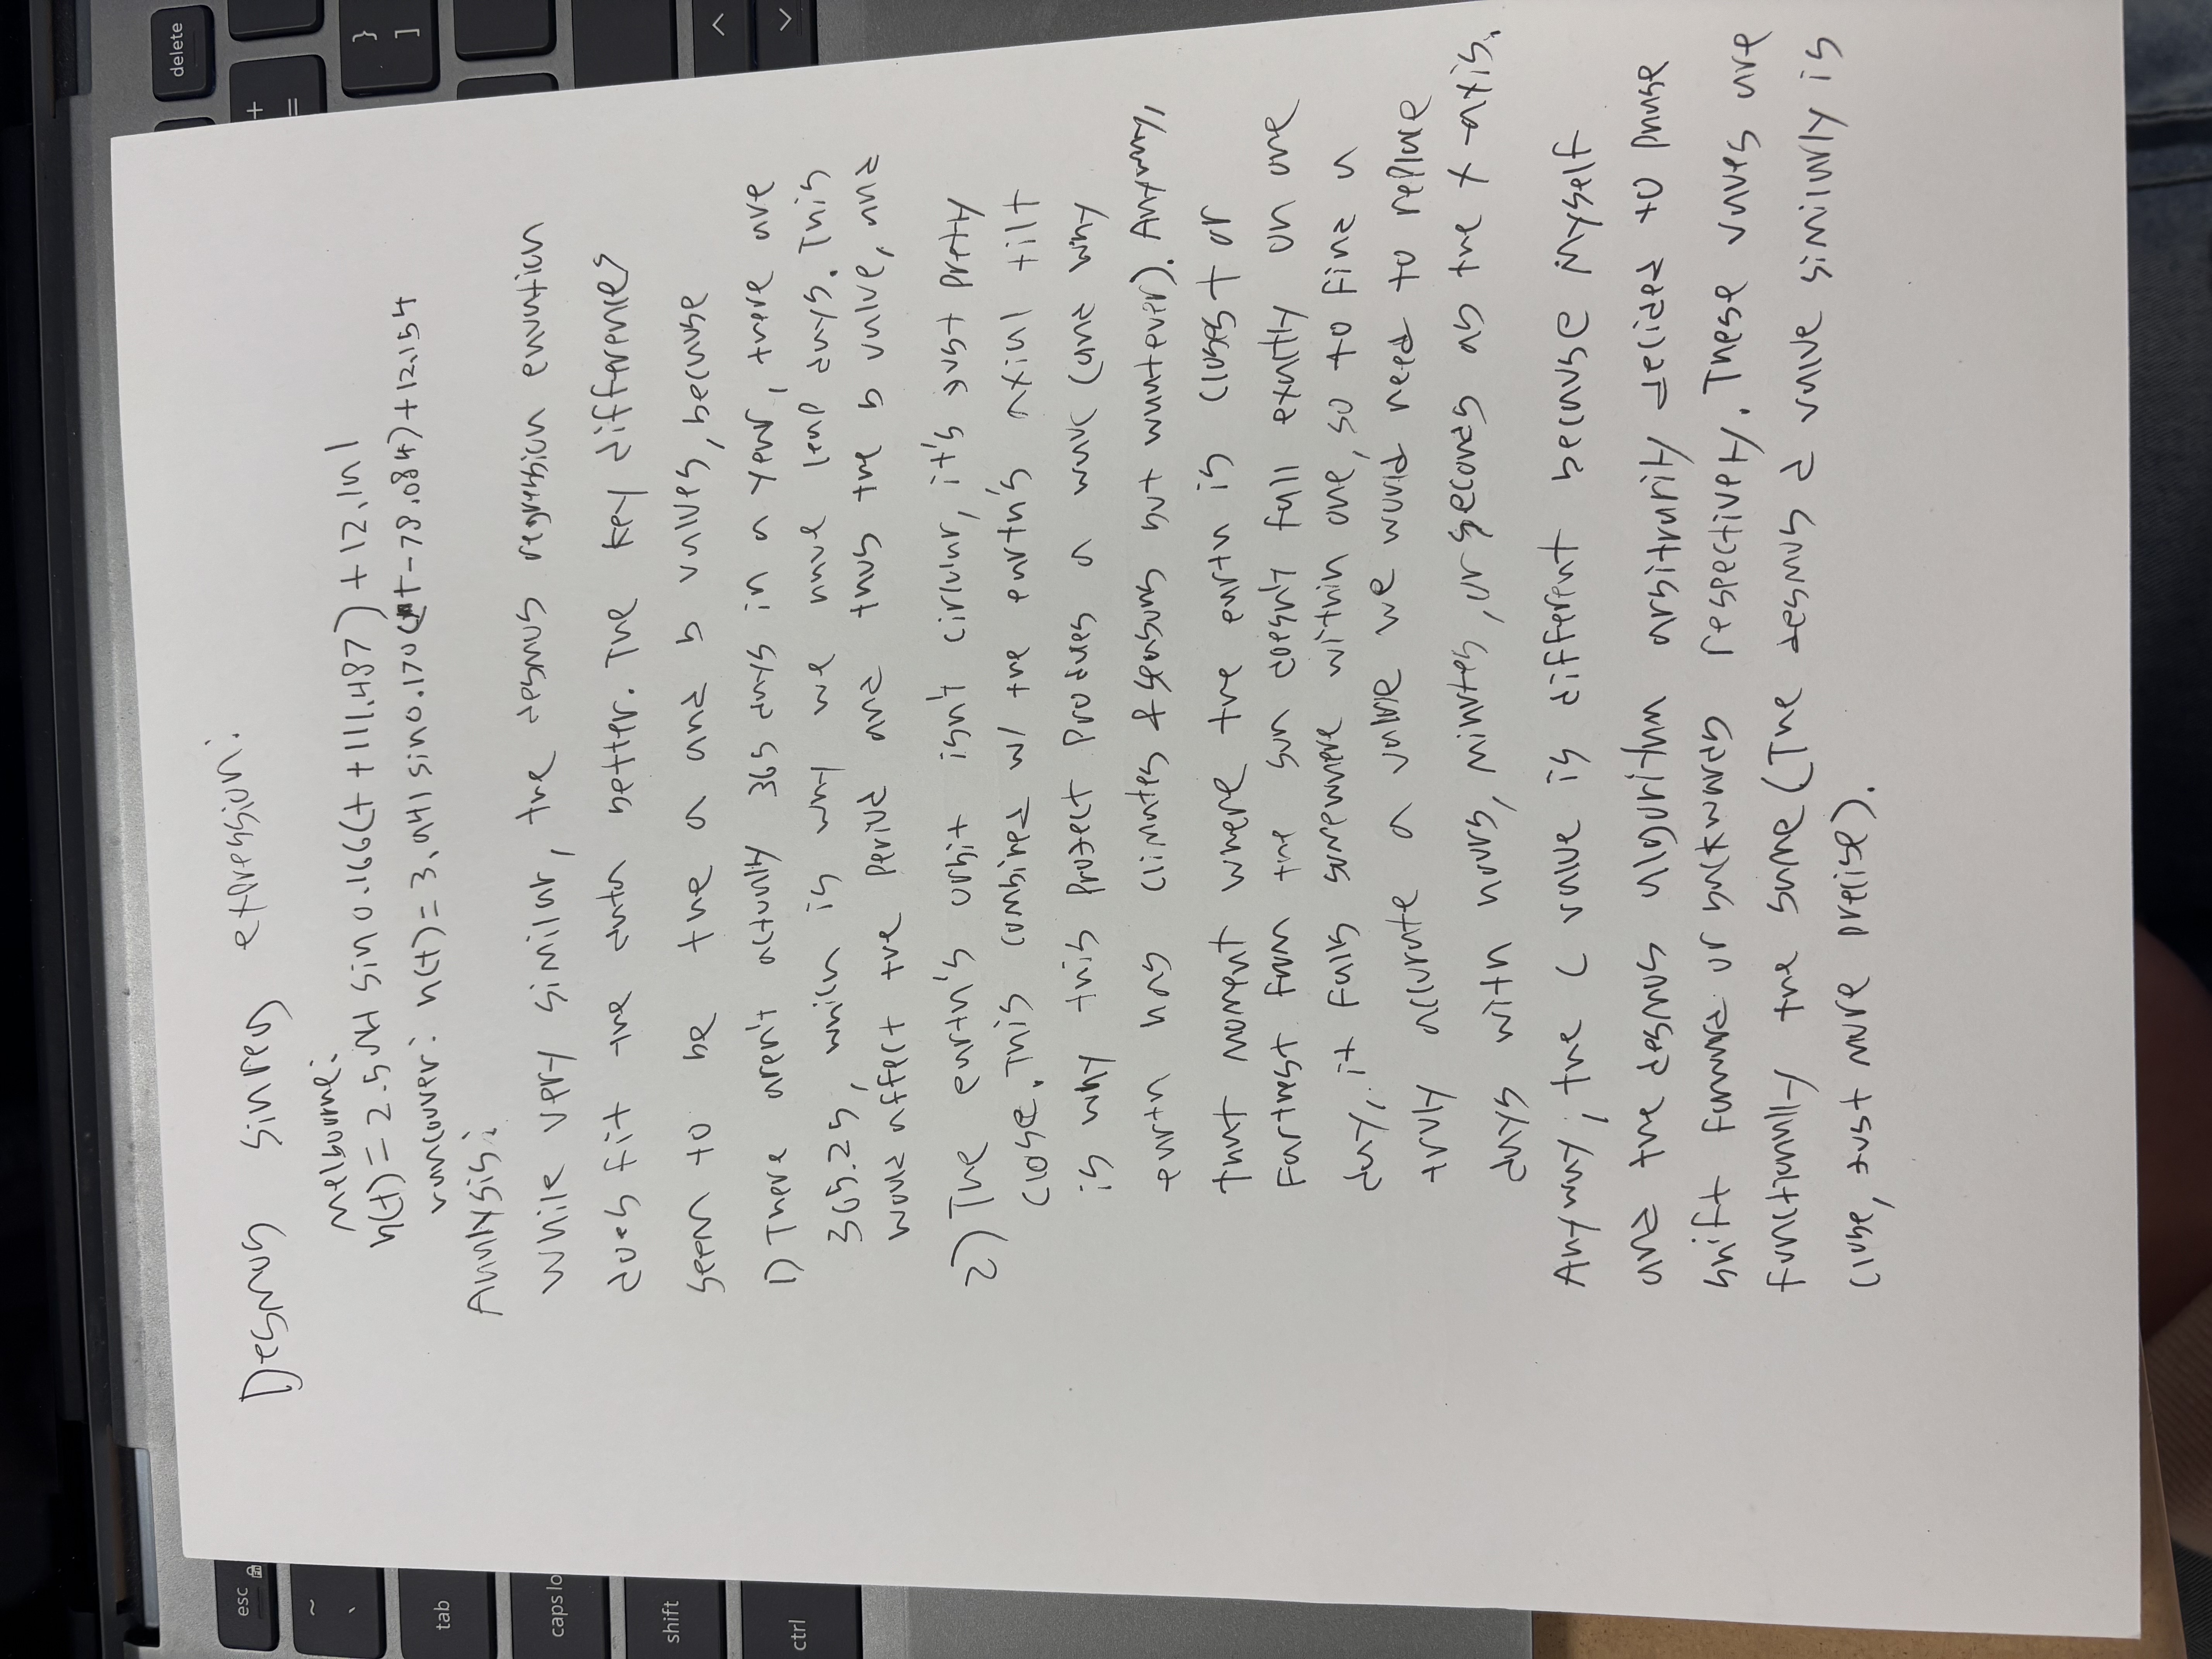 esc
Fn
~
`
tab
caps lo
shift
ctrl
delete
+
=
}
]
Desmos sinreg expression:
Melbourne:
h(t) = sin 0.166(t + 111.487) + 12.
Vancouver: h(t) = 3.941 sin 0.170(t - 79.084) + 12.154
Analysis:
While very similar, the desmos regression equation
does fit the data better. The key differences
seem to be the a and b values, because
1) There aren't actually 365 days in a year, there are
365.25, which is why we have leap days. This
would affect the period and thus the b value, and
2) The earth's orbit isn't circular, it's just pretty
close. This combined w/ the earth's axial tilt
is why this project produes a wave (and why
earth has climates & seasons but whatever). Anyway,
that moment where the earth is closest or
farthest from the sun doesn't fall exactly on one
day, it falls somewhere within one, so to find a
truly accurate a value we would need to replace
days with hours, minutes, or seconds as the x-axis.
Anyway, the c value is different because myself
and the desmos algorithm arbitrarily decided to phase
shift forward or backwards respectively. These vaves are
functionally the same (The desmos d value similarly is
close, just more precise).